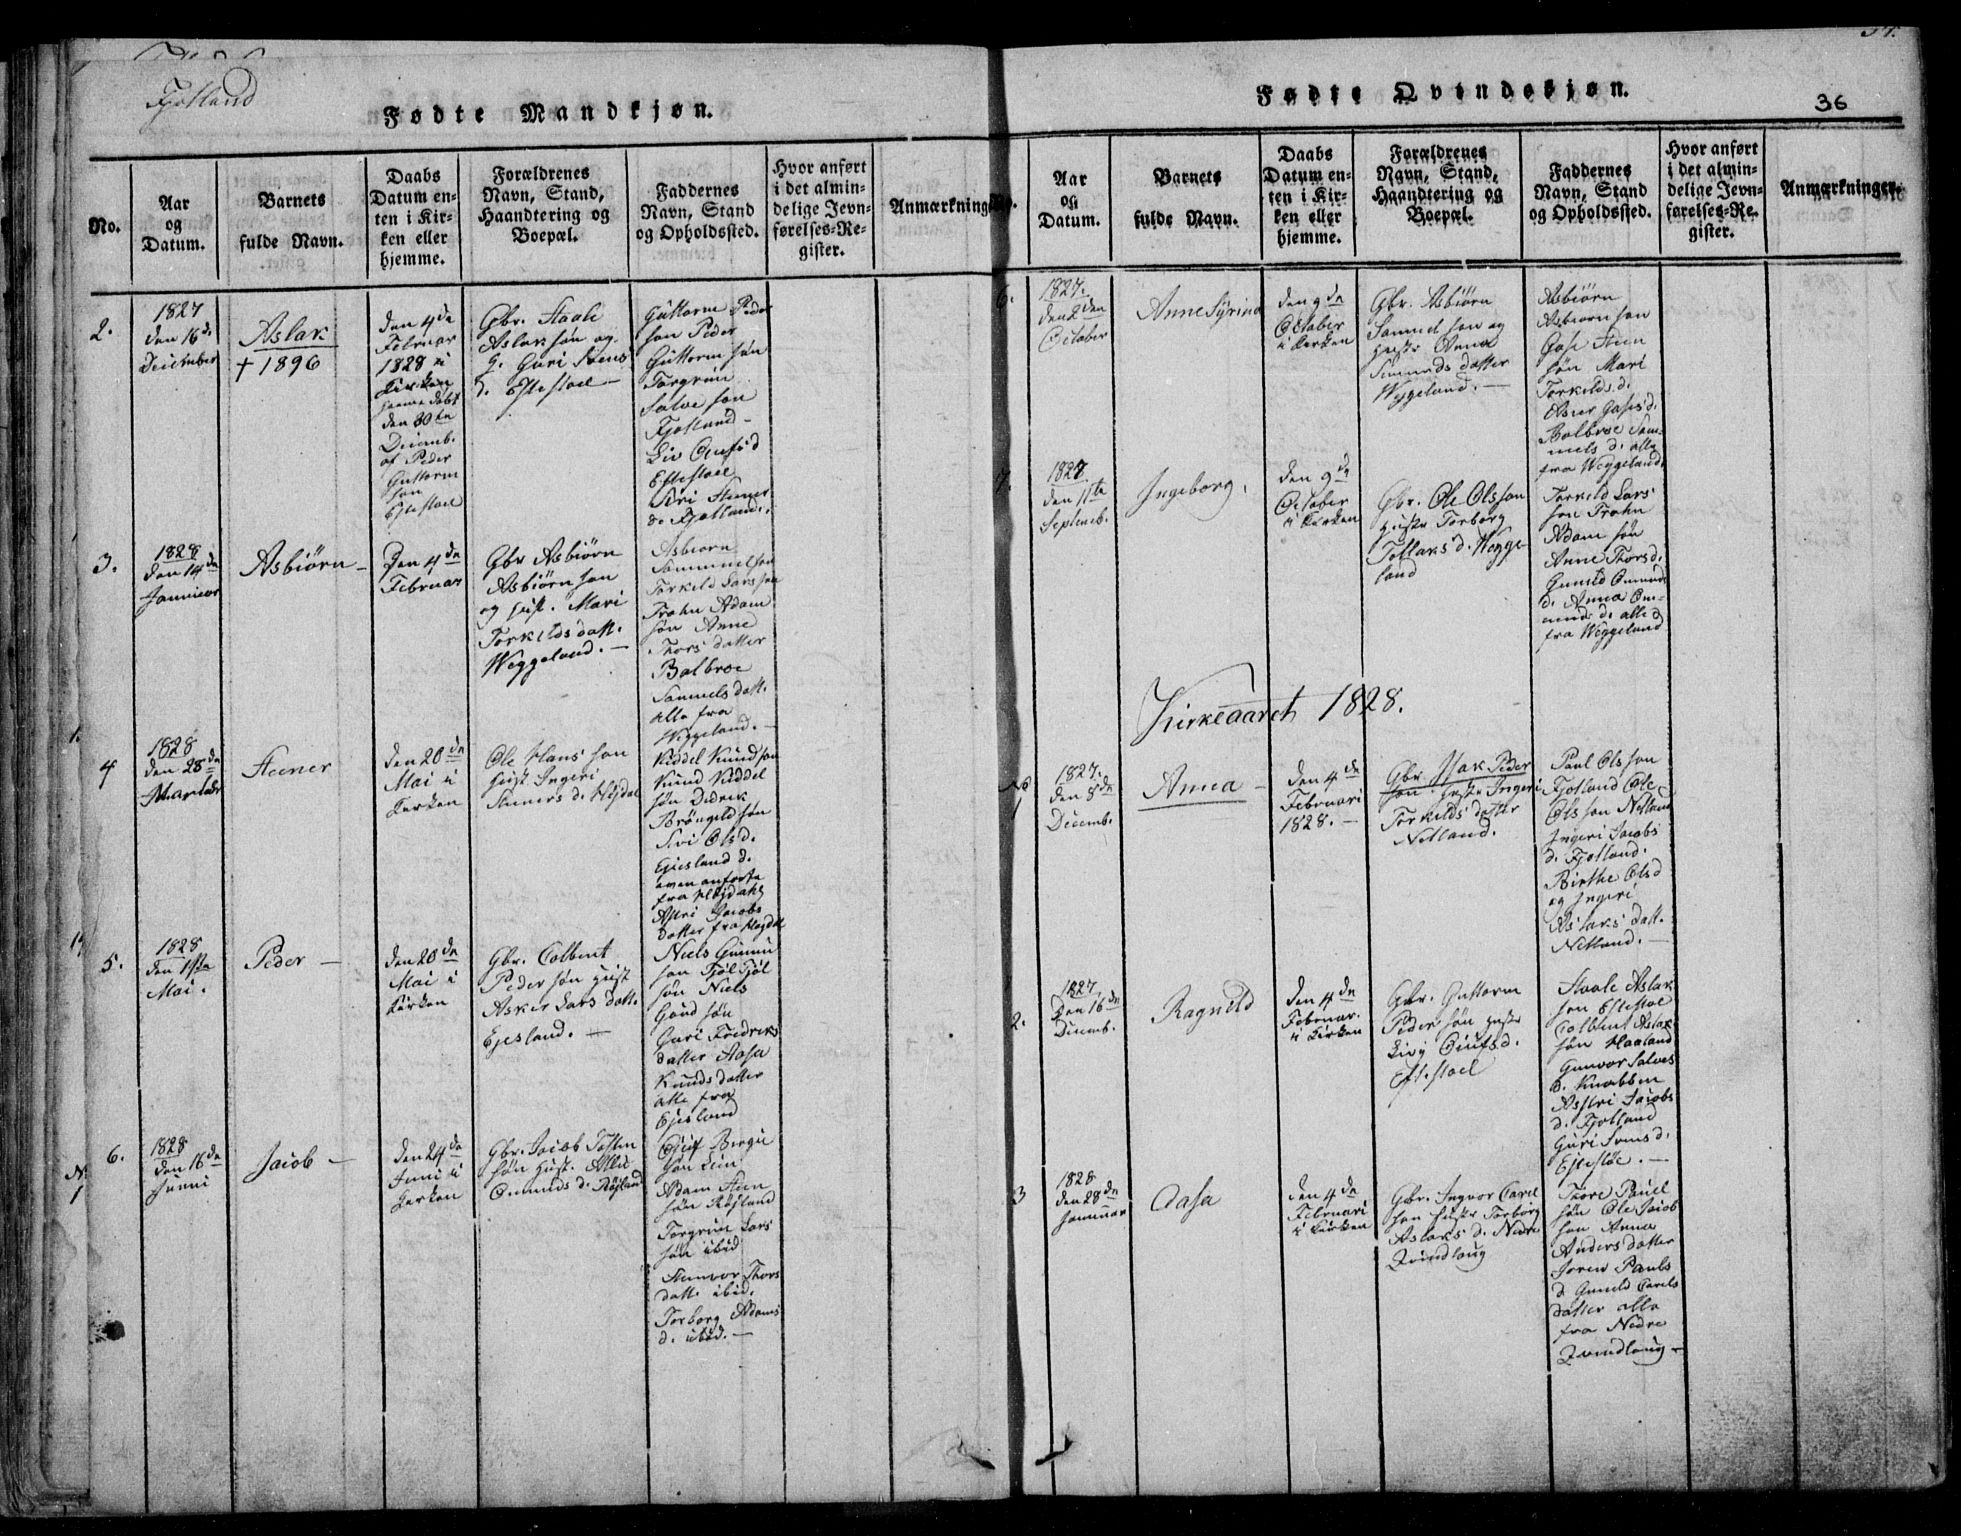 Fjotland
Fødte Mandkjøn.
No.
Aar
og
Datum.
Barnets
fulde Navn.
Daabs
Datum en-
ten i Kir-
ken eller
hjemme.
Forældrenes
Navn, Stand,
Haandtering og
Boepæl.
Faddernes
Navn, Stand
og Opholdssted.
Hvor anført
i det almin-
delige Jevn-
førelses-Re-
gister.
Anmærkning
2.
1827
den 16de
December
Aslak
† 1896
den 4de
Februar
1828 i
Kirken
hjemme døbt
den 30te
Decemb.
af Peder
Guttorm
søn
Eftestoel
Gbr. Staale
Aslaksøn og
G. Guri Svens
d. Eftestoel —
Guttorm Peder
søn Peder
Guttorm søn
Torgrim
Salve søn
Fjotland —
Liv Olufsd
Eftestoel
Siri Stener
d. Fjotland.
3.
1828
den 14de
Januar
Asbiørn —
Den 4de
Februar
Gbr Asbiørn
Asbiørnsøn
og hust. Mari
Torkildsdatt.
Weggeland. —
Asbiørn
Sammuelsøn
Torkild Larssøn
Trohn Adam
søn Anne
Thorsdatter
Bolbroe
Samuelsdatt.
alle fra
Weggeland. —
4
1828
den 28de
Martii
Steener
den 20de
Mai i
Kirken
Ole Hans søn
hust Ingeri
Steners d.
Kiddel Knudsøn
Knud Kiddel
søn Didrik
søn
Siri Olsd.
Egesland d.
Astri Jacobs
datter fra
5.
1828
den 1ste
Mai.
Peder —
den 20de
Mai i
Kirken
Gbr. Colbent
Pedersøn hust
Asker Lars datt.
Egesland. —
Niels Gunnu
søn Fjøl Fjøl
søn Niels
søn
Guri Fredriks
datter Aasa
Knudsdatter
alle fra
Egesland
6.
1828
den 16de
Junii
Jacob —
den 24de
Juni i
Kirken
Gbr. Jacob Tosten
søn hust.
Omunds d. Røjland
søn
Adam Sten
søn Røjland
Torgrim Lars
søn ibid
Thors
datt. ibid.
Torborg Adams
d. ibid. —
Fødte Qvindekjøn.
36
Aar
og
Datum.
Barnets
fulde Navn.
Daabs
Datum en-
ten i Kir-
ken eller
hjemme.
Forældrenes
Navn, Stand,
Haandtering og
Boepæl.
Faddernes
Navn, Stand
og Opholdssted.
Hvor anført
i det almin-
delige Jevn-
førelses-Re-
gister.
Anmærkninger.
6.
1827.
den 2den
October
Anne Syrina
den 9de
October
i Kirken
Gbr. Asbiørn
Samuel søn og
hustr Anna
datter
Weggeland. —
Asbiørn
Asbiørn søn
søn Mari
Torkilds d.
Bolbroe Sam-
mels d. alle
fra Weggeland.
7.
1827
den 11te
Septemb.
Ingeborg.
den 9de
October
i Kirken
Gbr. Ole Olssøn
hustr Torborg
Tollaks d. Wegge-
land
Torkild Lars
søn Trohn
Adam søn
Anne Thorsd.
Gunild Omund
d. Anna Om-
unds d. alle
fra Weggeland
Kirkeaaret 1828.
No
1
1827.
den 8de
Decemb.
Anna —
den 4de
Februari
1828. —
Gbr. Isak Peder
søn hustr Ingeri
Torkilds datter
Netland.
Paul Olssøn
Fjotland Ole
Olssøn Netland
Ingeri Jacobs
d. Fjotland.
Birthe Olsd
og Ingeri
Aslaks datt.
Netland. —
2.
1827
Den 16de
Decemb.
Ragnild
den 4de
Februar.
i Kirken
Gbr. Guttorm
Pedersøn hustr
Livj Olufsd.
Eftestoel
Staale Aslak
søn Eftestoel
Colbent Aslak
søn Haaland
Gunvor Salves
d. Knabben
Astri Jacobs
d. Fjotland
Guri Svensd.
Eftestøe. —
3
1828
den 28de
Januar
Aasa
den 4de
Februari
i Kirken
Gbr. Ingvor Carel
søn hustr Torborg
Aslaks d. Nedre
Qvindlaug
Thore Pauel
søn Ole Jacob
søn Anna
Andersdatter
Soren Pauls
d. Gunild Carels
datter alle
fra Nedre
Qvindlaug —